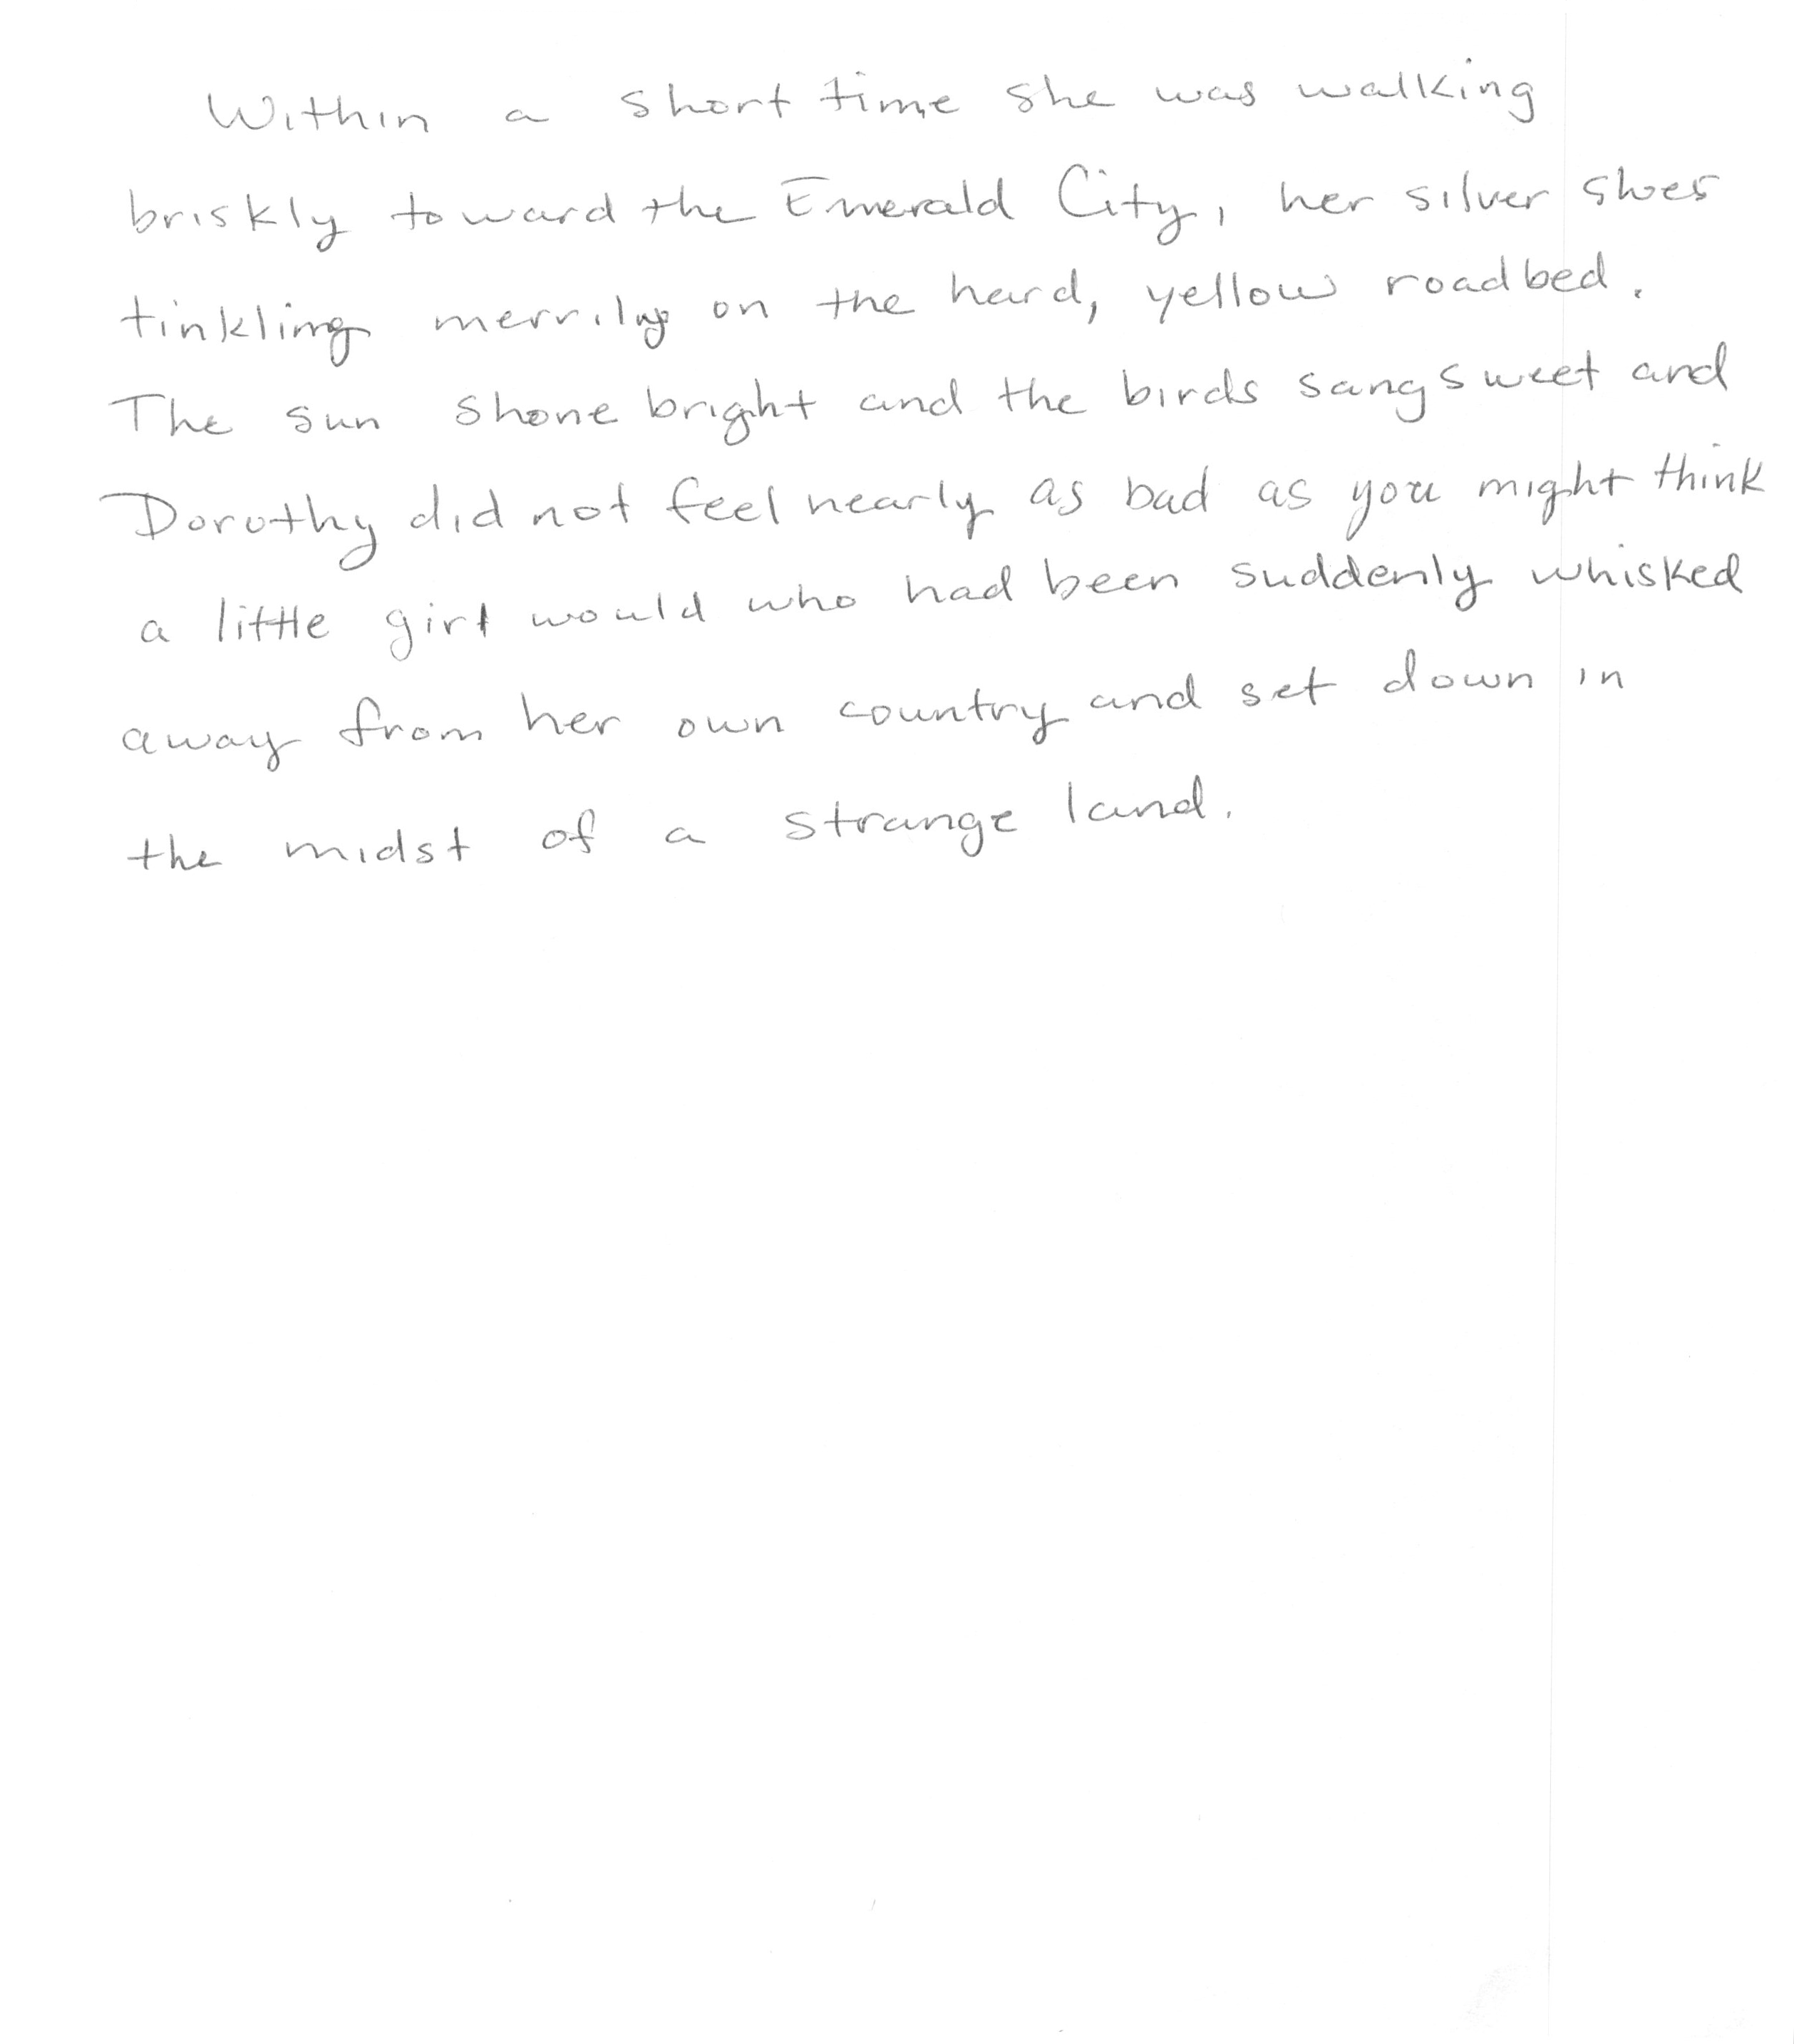 Within a short time she was walking
briskly toward the Emerald City, her silver shoes
tinkling merrily on the hard, yellow roadbed.
The sun shone bright and the birds sang sweet and
Dorothy did not feel nearly as bad as you might think
a little girl would who had been suddenly whisked
away from her own country and set down in
the midst of a strange land.